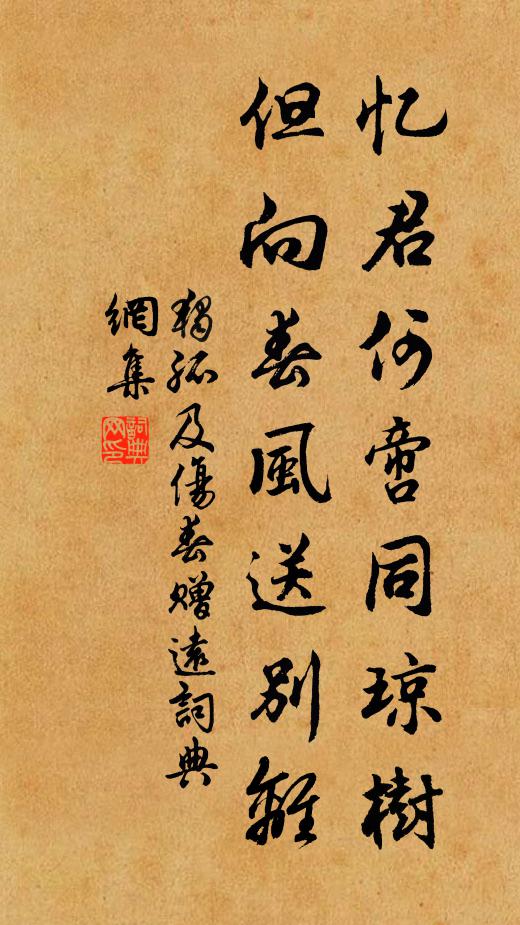 忆君何啻同琼樹
但向春風送别離
獨孤及傷春赠遠詞典
網集
詞典網印